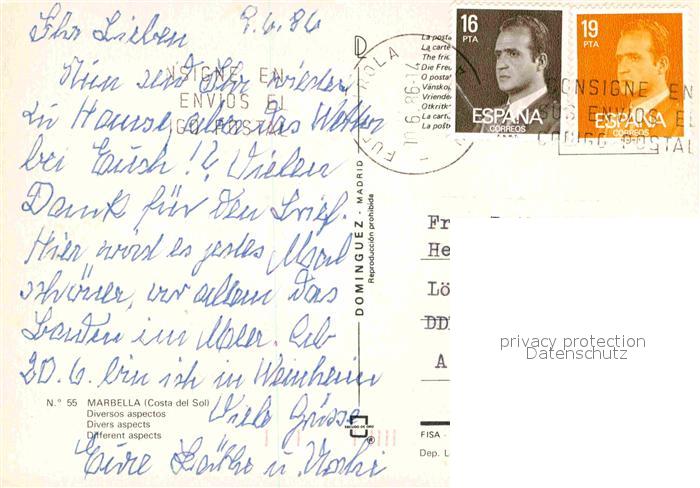 9.6.86
Ihr Lieben
Nun seid Ihr wieder
zu Hause, aber das Wetter
bei Euch!? Vielen
Dank für den Brief.
Hier wird es jedes Mal
schöner, vor allem das
Baden im Meer. Ab
20.6. bin ich in Weinheim
Viele Grüsse
Eure Käthe u.
N.° 55 MARBELLA (Costa del Sol)
Diversos aspectos
Divers aspects
Different aspects
DOMINGUEZ - MADRID
Reproducción prohibida
ESCUDO DE ORO
®
D
La posta
La carte
The frie
Die Freu
O posta
Vänskap
Vrienden
Otkritk
La cart
La pošt
16
PTA
ESPAÑA
CORREOS
F.N.M.T.
19
PTA
ESPAÑA
CORREOS
NSIGNE EN
ENVIOS EL
GO POSTAL
FUENGIROLA
10.6.86-14
CONSIGNE EN
SUS ENVIOS EL
CODIGO POSTAL
Fr
He
Lö
DD
A
privacy protection
Datenschutz
FISA -
Dep. L